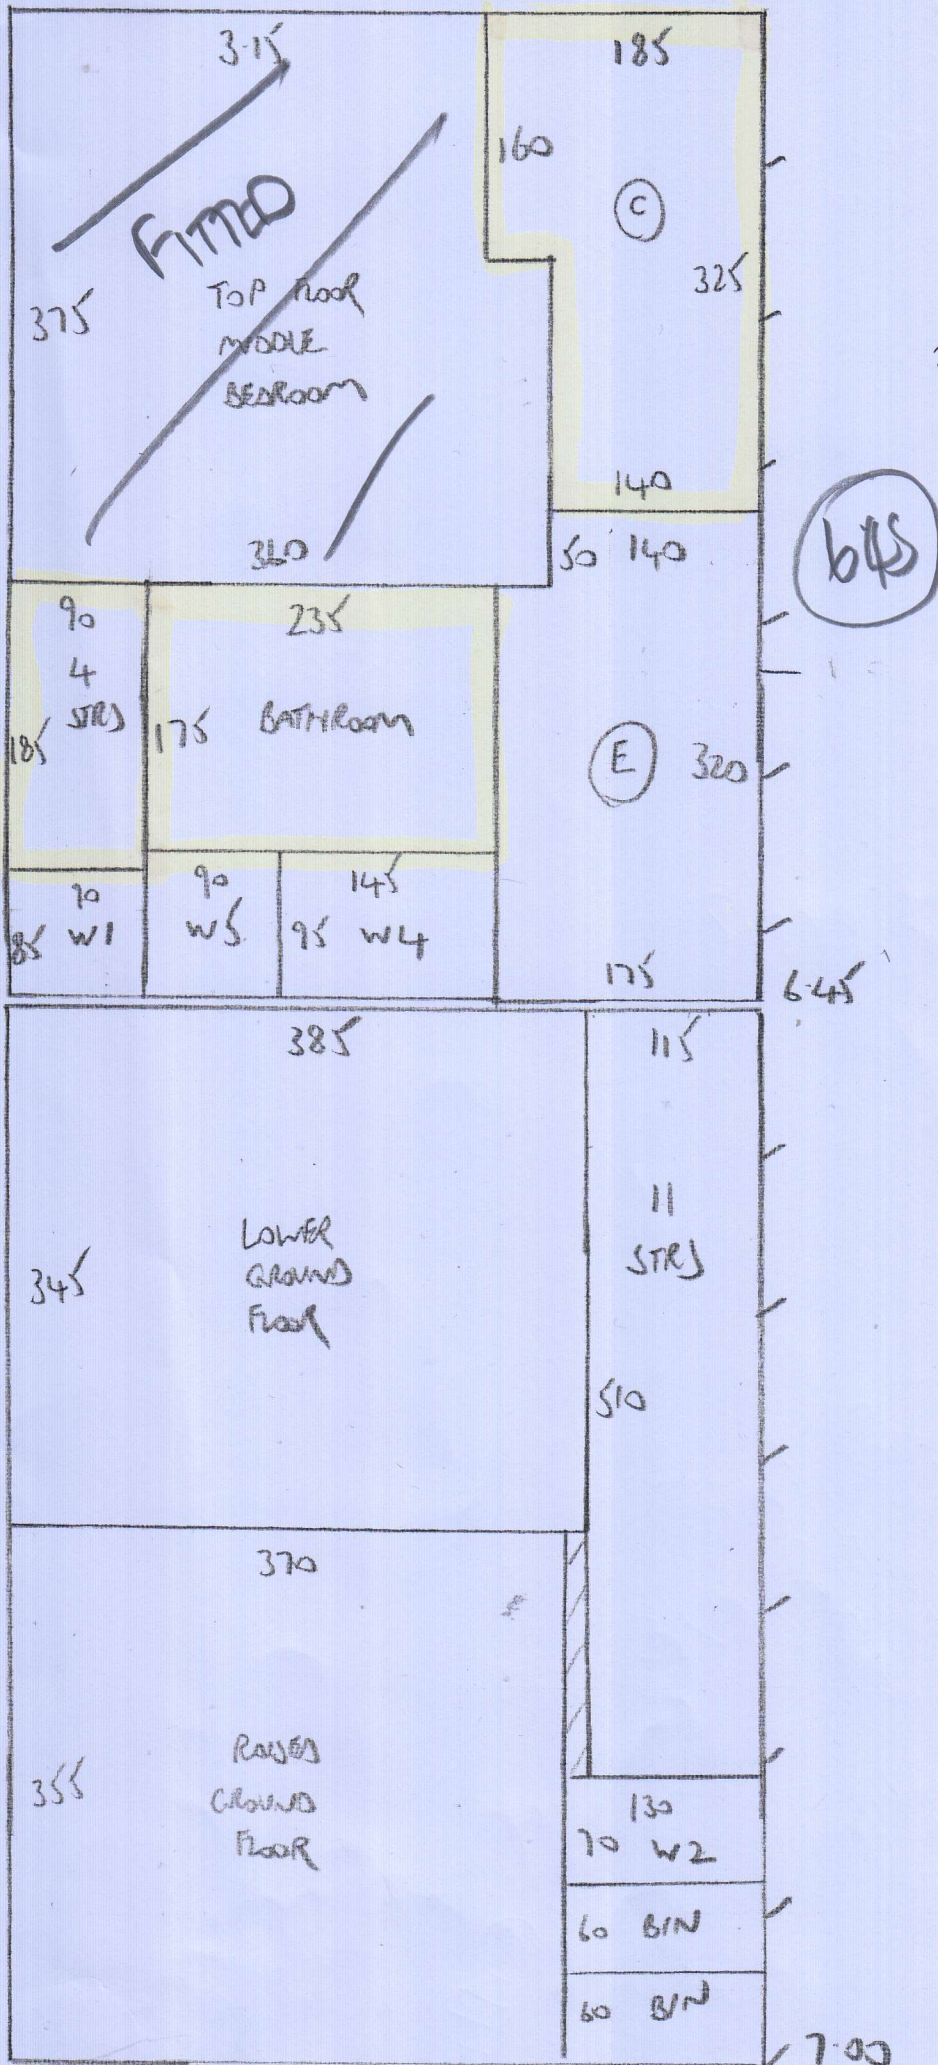 3.15
185
160
C
FITTED
375
TOP FLOOR
MIDDLE
BEDROOM
325
140
360
50 140
645
90
4
STRS
185
235
175 BATHROOM
E
320
90
85 W1
90
W5
145
95 W4
175
6.45
385
115
11
STRS
LOWER
GROUND
FLOOR
345
510
370
RAISED
GROUND
FLOOR
355
130
70 W2
60 BIN
60 BIN
7.00